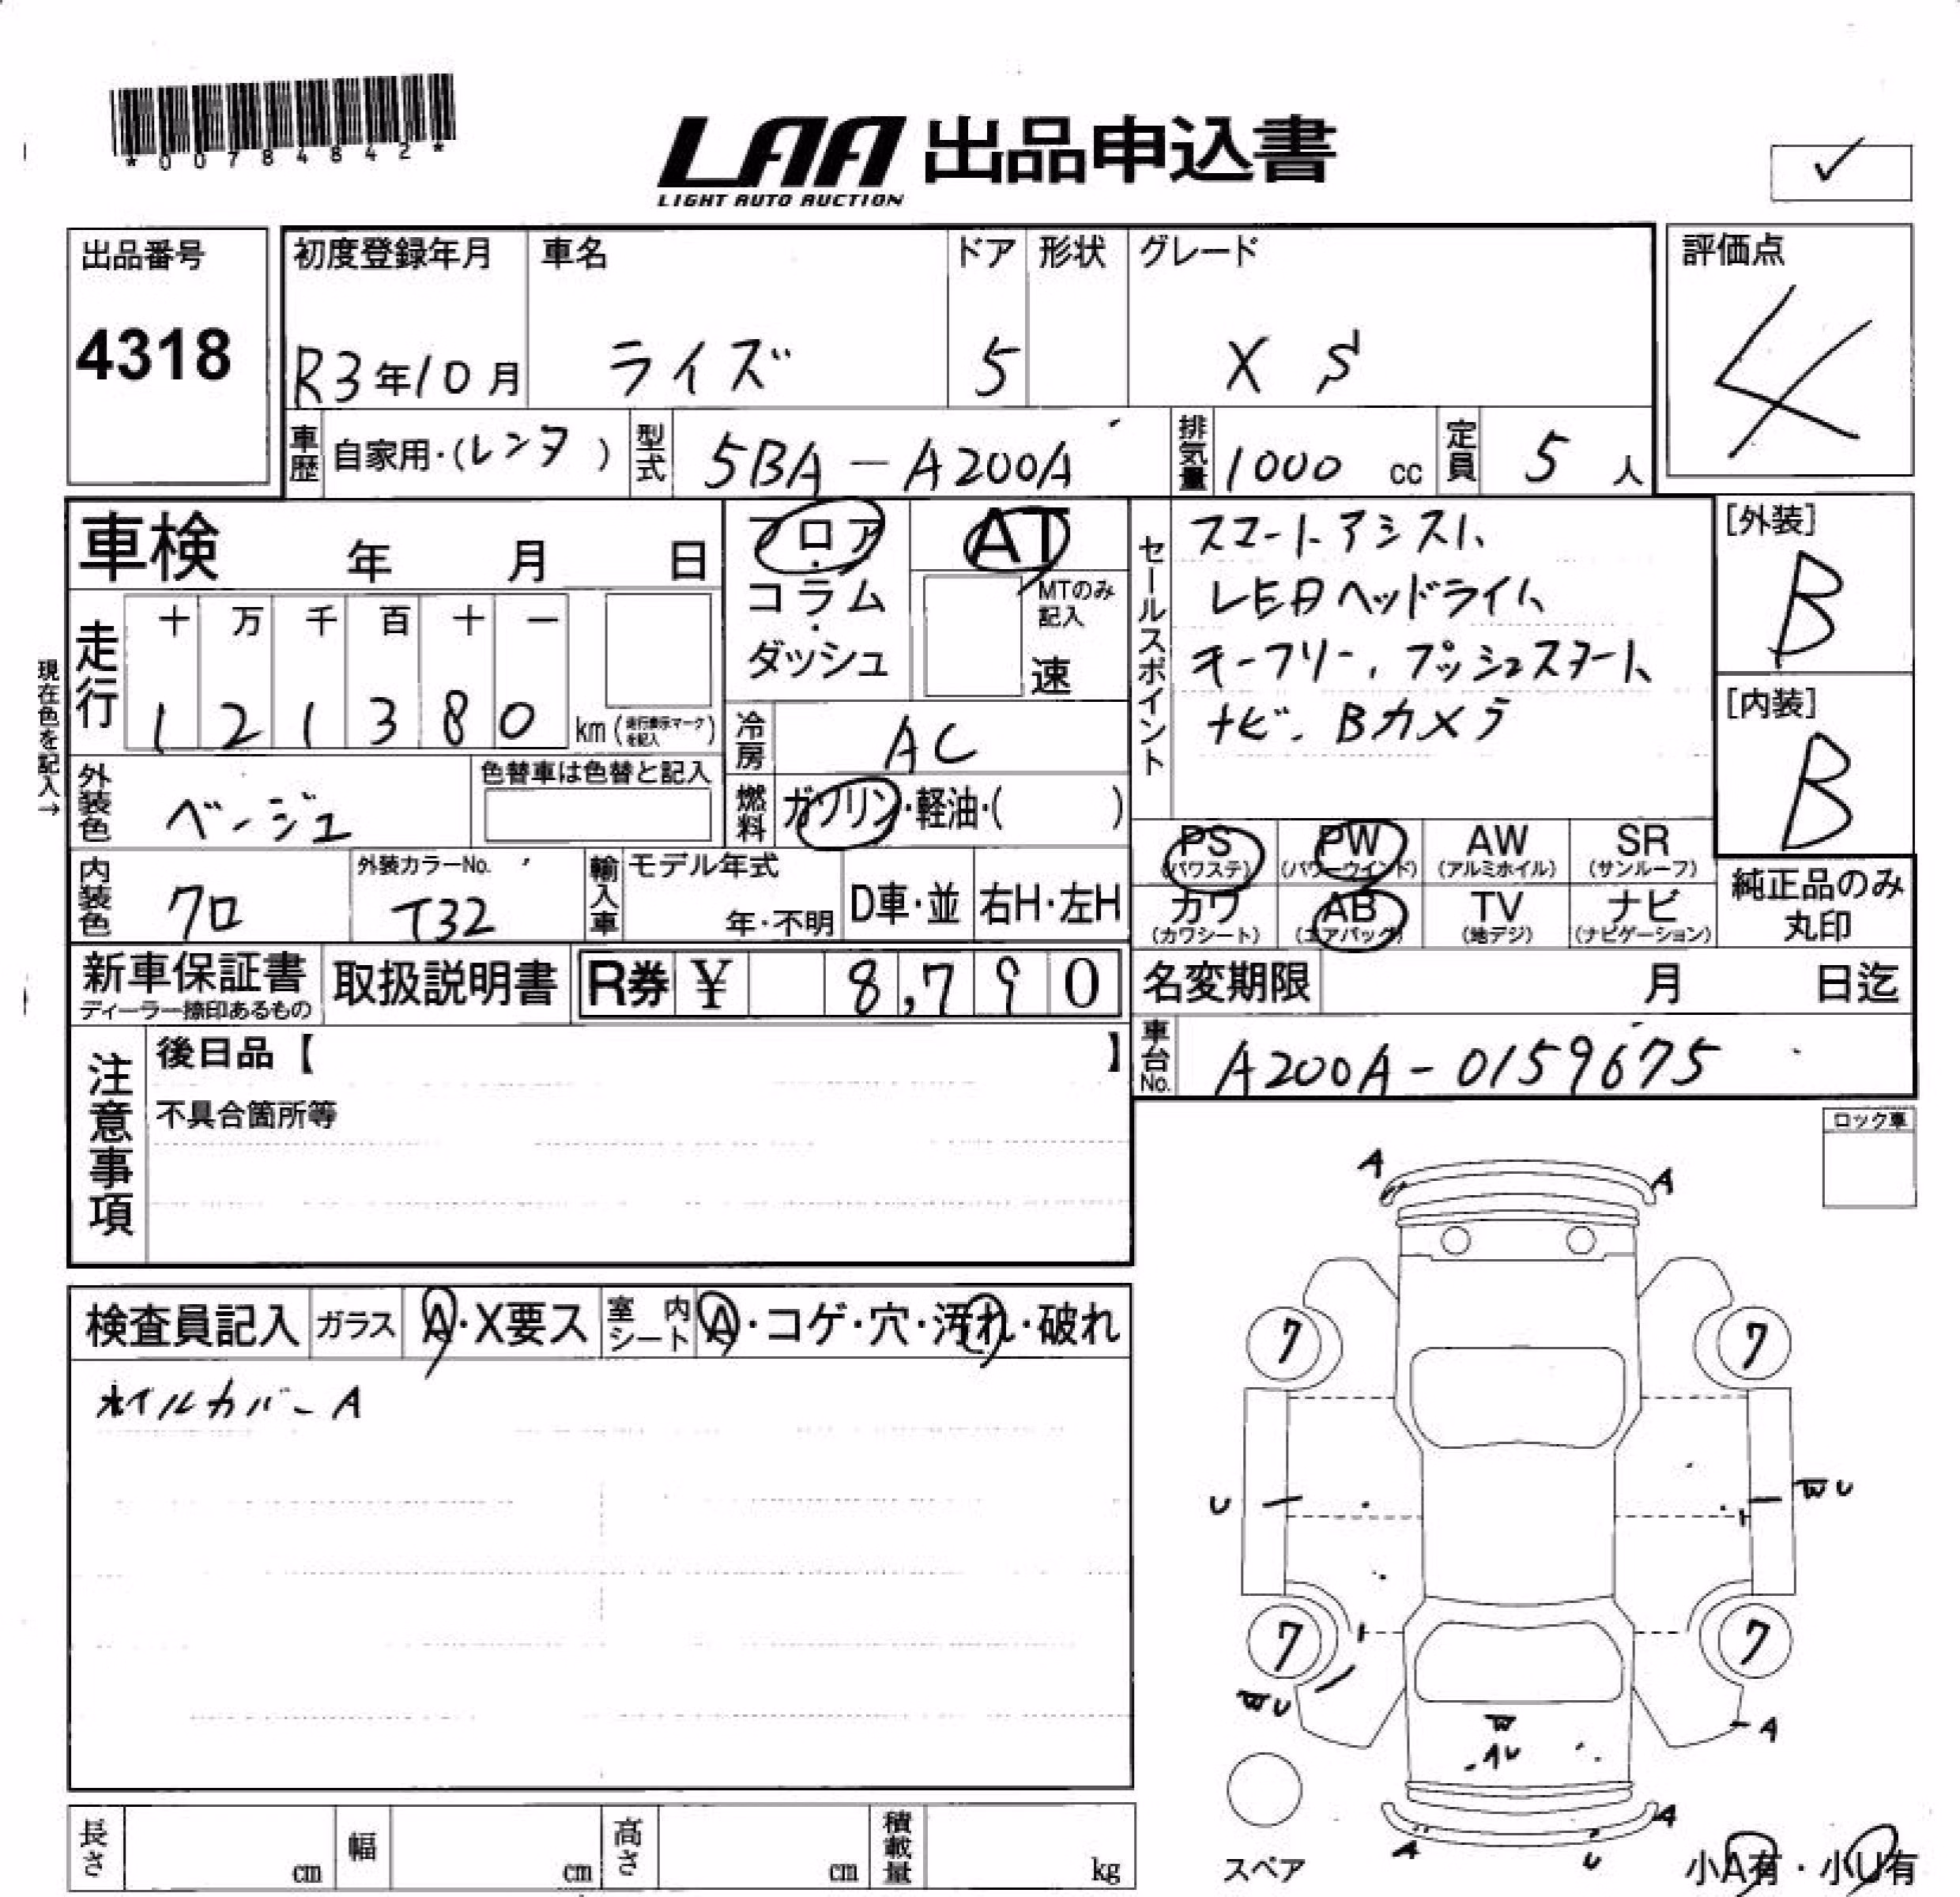 *00784842*
LAA 出品申込書
LIGHT AUTO AUCTION
✓
出品番号
4318
初度登録年月
R3年10月
車名
ライズ
ドア
5
形状
グレード
X S
評価点
4
車歴
自家用・(レンタ)
型式
5BA-A200A
排気量
1000 cc
定員
5 人
車検 年 月 日
フロア・コラム・ダッシュ
AT
MTのみ記入
速
走行
十 万 千 百 十 一
1 2 1 3 8 0
km(走行表示マークを記入)
冷房
AC
現在色を記入→
外装色
ベージュ
色替車は色替と記入
燃料
ガソリン・軽油・( )
内装色
クロ
外装カラーNo.
T32
輸入車
モデル年式
年・不明
D車・並
右H・左H
セールスポイント
スマートアシスト
LEDヘッドライト
キーフリー、プッシュスタート
ナビ、Bカメラ
[外装]
B
[内装]
B
PS (パワステ)
PW (パワーウインド)
AW (アルミホイル)
SR (サンルーフ)
カワ (カワシート)
AB (エアバック)
TV (地デジ)
ナビ (ナビゲーション)
純正品のみ丸印
新車保証書
ディーラー捺印あるもの
取扱説明書
R券 ¥ 8,790
名変期限 月 日迄
車台No.
A200A-0159675
注意事項
後日品【 】
不具合箇所等
ロック車
検査員記入
ガラス
A・X要ス
室内シート
A・コゲ・穴・汚れ・破れ
ホイルカバーA
A
A
7
7
U
W U
7
7
W U
W
AU
A
A
A
U
スペア
小A有・小U有
長さ cm
幅 cm
高さ cm
積載量 kg